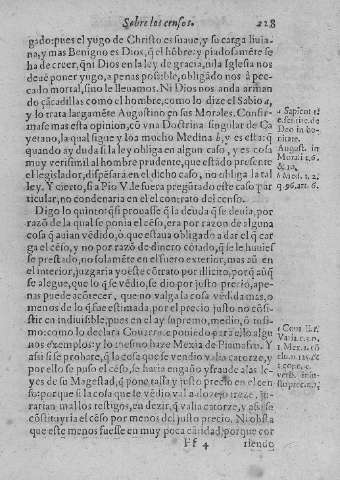 Sobre los censos. 228
gado: pues el yugo de Christo es suaue, y su carga liuia-
na, y mas Benigno es Dios, q̃ el hõbre: y piadosamẽte se
ha de creer, q̃ ni Dios en la ley de gracia, ni la Iglesia nos
deuẽ poner yugo, a penas possible, obligãdo nos à pe-
cado mortal, sino le lleuamos. Ni Dios nos anda arman
do çãcadillas como el hombre, como lo dize el Sabio a,
y lo trata largamẽte Augustino en sus Morales. Confir-
mase mas esta opinion, cõ vna Doctrina singular de Ca
yetano, la qual sigue y loa mucho Medina b, y es esta: q̃
quando ay duda si la ley obliga en algun caso, y es cosa
muy verisimil al hombre prudente, que estãdo presente
el legislador, dispẽsarà en el dicho caso, no obliga la tal
ley. Y cierto, si a Pio V. le fuera pregũtado este caso par
ticular, no condenaria en el el contrato del censo.
Digo lo quinto: q̃ si prouasse q̃ la deuda q̃ se deuia, por
razõ de la qual se ponia el cẽso, era por razon de alguna
cosa q̃ auian vẽdido, ò que estaua obligado a dar el q̃ car
ga el cẽso, y no por razõ de dinero cõtado, q̃ se le huuies
se prestado, no solamẽte en el fuero exterior, mas aũ en
el interior, juzgaria yo este cõtrato por illicito, porq̃ aũq̃
se alegue, que lo q̃ se vẽdio, se dio por justo precio, ape-
nas puede acõtecer, que no valga la cosa vẽdida mas, o
menos de lo q̃ fue estimada, por el precio justo no cõ-
sistir en indiuisible, pues en el ay supremo, medio, ò infi-
mo: como lo declara Couarr. c poniẽdo para ello algu-
nos exemplos: y lo mesmo haze Mexia de Y
assi si se probare, q̃ la cosa que se vendio valia catorze, y
por ello se puso el cẽso, se haria engaño y fraude a las le-
yes de su Magestad, q̃ pone tassa y justo precio en el cen-
so: porque si la cosa que le vẽdio valia doze o treze, ju-
rarian mal los testigos, en dezir, q̃ valia catorze, y assi se
cõstituyria el cẽso por menos del justo precio. Ni obsta
que este menos fuesse en muy poca cãtidad, porque cor
Ff 4 riendo
a Sapient.
Deo in bo-
nitate.
August. in
Morali
b Med. 1. 2.
q. 96. art. 6.
c Couar. li. 2.